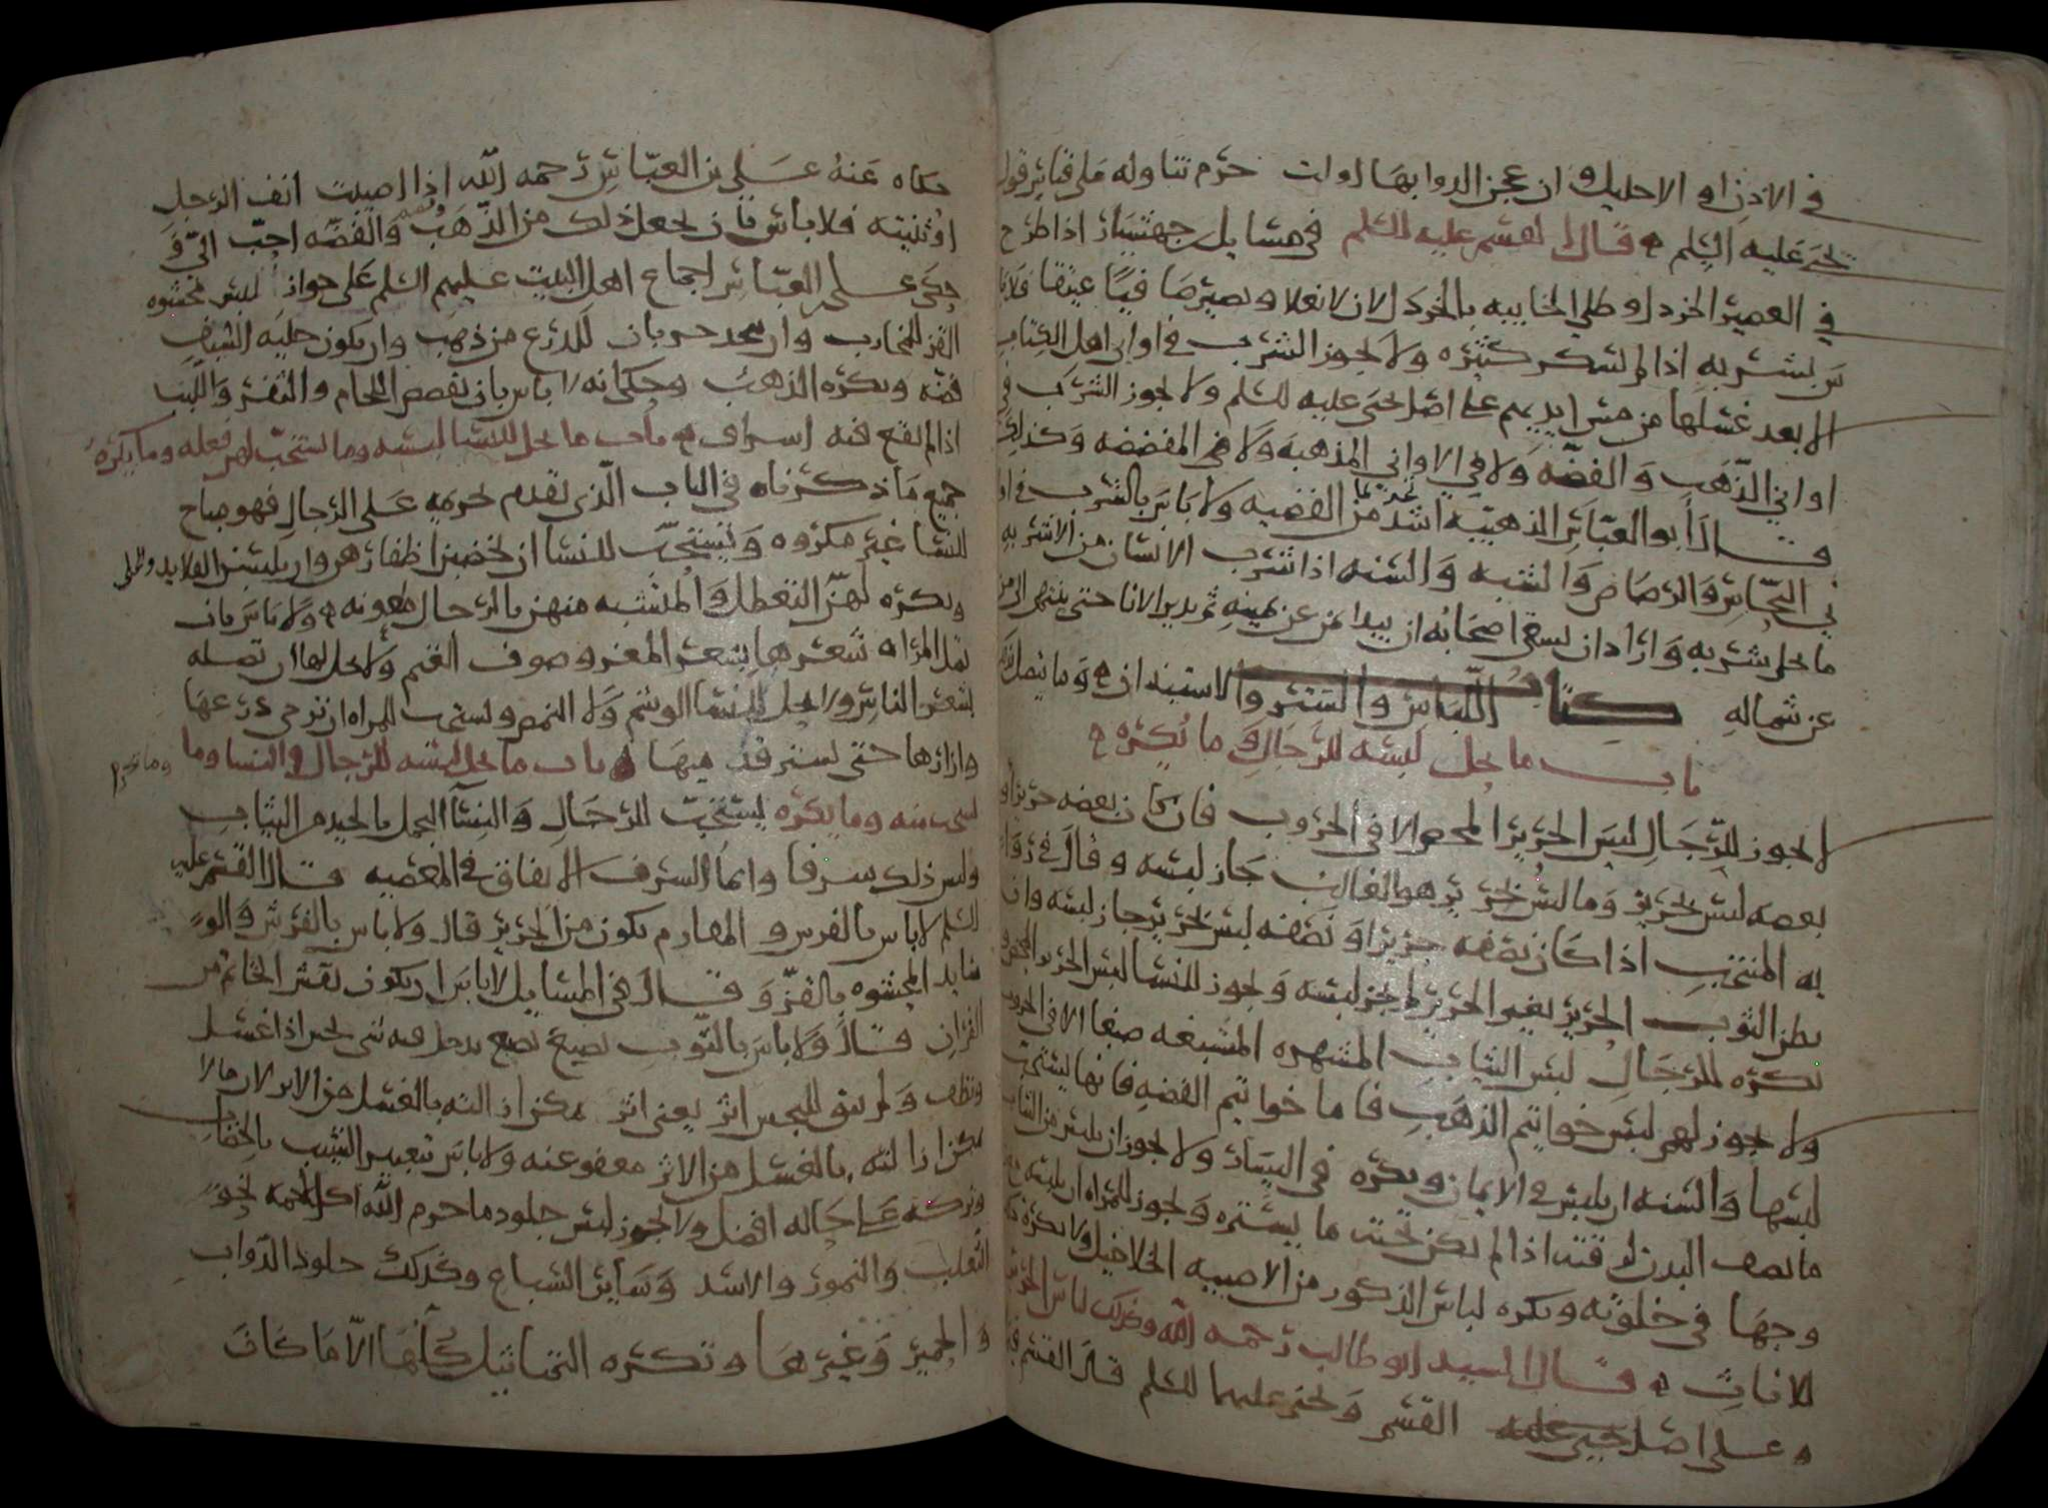 في الاذن او الاحليل وان عجن الدوا بها اولت حرم تناوله على قياس قول
يحيى عليه السلم ه قال القسم عليه السلم في مسايل جهشيار اذا طرح
في العصير الخردل او طلي الخابيه بالخردل لان لا يغلا ويصير صافيًا عتيقا فلا با
س بشربه اذا لم يسكر كثيره ولا يجوز الشرب في اواني اهل الكتاب
الا بعد غسلها من مس ايديهم على اصل يحيى عليه السلم ولا يجوز الشرب في
اواني الذهب والفضه ولا في الاواني المذهبه ولا في المفضضه وكذلك
قال ابو العباس الذهبيه اشد تحريما من الفضيه ولا باس بالشرب في اوا
ني النحاس والرصاص والشبه والسنه اذا شرب الانسان من الاشربه
ما يحل شربه واراد ان يسقي اصحابه ان يبدا بمن عن يمينه ثم يدير الانا حتى ينتهي الى من
عن شماله كتاب اللباس والستر والاستيذان ه وما يتصل
باب ما يحل لبسه للرجال وما يكره ه
لا يجوز للرجال لبس الحرير المحض الا في الحروب فان كان بعضه حريرا و
بعضه ليس بحرير وما ليس بحرير هو الغالب جاز لبسه وقال في روا
يه المنتخب اذا كان نصفه حريرا ونصفه ليس بحرير جاز لبسه وان
بطن الثوب الحرير بغير الحرير لم يجز لبسه ويجوز للنسا لبس الحرير المحض و
يكره للرجال لبس الثياب المشهره المشبعه صبغا الا في الحروب
ولا يجوز لهم لبس خواتيم الذهب فاما خواتيم الفضه فانها يستحب
لبسها والسنه ان يلبس في الايمان ويكره في اليسار ولا يجوز ان يلبس من الثياب
ما يصف البدن لرقته اذا لم يكن تحته ما يستره ويجوز للمراه ان يلبسه مع
وجها في خلوته ويكره لباس الذكور من الاصبيه الخلاخيل ولا يكره
للاناث ه قال السيد ابو طالب رحمه الله وكذلك لباس الحرير
ه على اصل القسم ويحيى عليهما السلم قال القسم فيما
حكاه عنه علي بن العباس رحمه الله اذا اصيبت انف الرجل
او ثنيته فلا باس بان يجعل ذلك من الذهب والفضه احب الي و
حكى علي بن العباس اجماع اهل البيت عليهم السلم على جواز لبس محشوه
القز للمحارب وان يتخذ جربان للدرع من ذهب وان يكون حليه السيف
فضه ويكره الذهب وحكى انه لا باس بان يفضض اللجام والثفر واللبب
اذا لم يقع فيه اسراف ه باب ما يحل للنسا لبسه وما يستحب لهن فعله وما يكره
جميع ما ذكرناه في الباب الذي تقدم تحريمه على الرجال فهو مباح
للنسا غير مكروه ويستحب للنسا ان يخضبن اظفارهن وان يلبسن القلايد والحلي
ويكره لهن التعطل والمتشبه منهن بالرجال ملعونه ه ولا باس بان
تصل المراه شعرها بشعر المعز وصوف الغنم ولا يحل لها ان تصله
بشعر الناس ولا يحل للنسا الوشم ولا النمص ويستحب للمراه ان ترخي درعها
وازارها حتى يستر قدميها ه باب ما يحل لبسه للرجال والنسا وما وما يحرم
يستحب منه وما يكره يستحب للرجال والنسا التجمل بالجيد من الثياب
وليس ذلك سرفا وانما السرف الانفاق في المعصيه قال القسم عليه
السلم لا باس بالفرس والمقارم يكون من الحرير قال ولا باس بالفرش والو
سايد المحشوه بالقز وقال في المسايل لا باس ان يكون نقش الخاتم من
القران قال ولا باس بالثوب يصبغ بصبغ يدخل فيه شي نجس اذا غسل
ونظف ولم يبق للنجس اثر يعني اثر يمكن ازالته بالغسل من الاثر لان ما لا
يمكن ازالته بالغسل من الاثر معفو عنه ولا باس تغيير الشيب بالخضاب
وتركه على حاله افضل ولا يجوز لبس جلود ما حرم الله اكل لحمه نحو
الثعلب والنمور والاسد وساير السباع وكذلك جلود الدواب
والحمير وغيرها وتكره التماثيل كلها الا ما كان